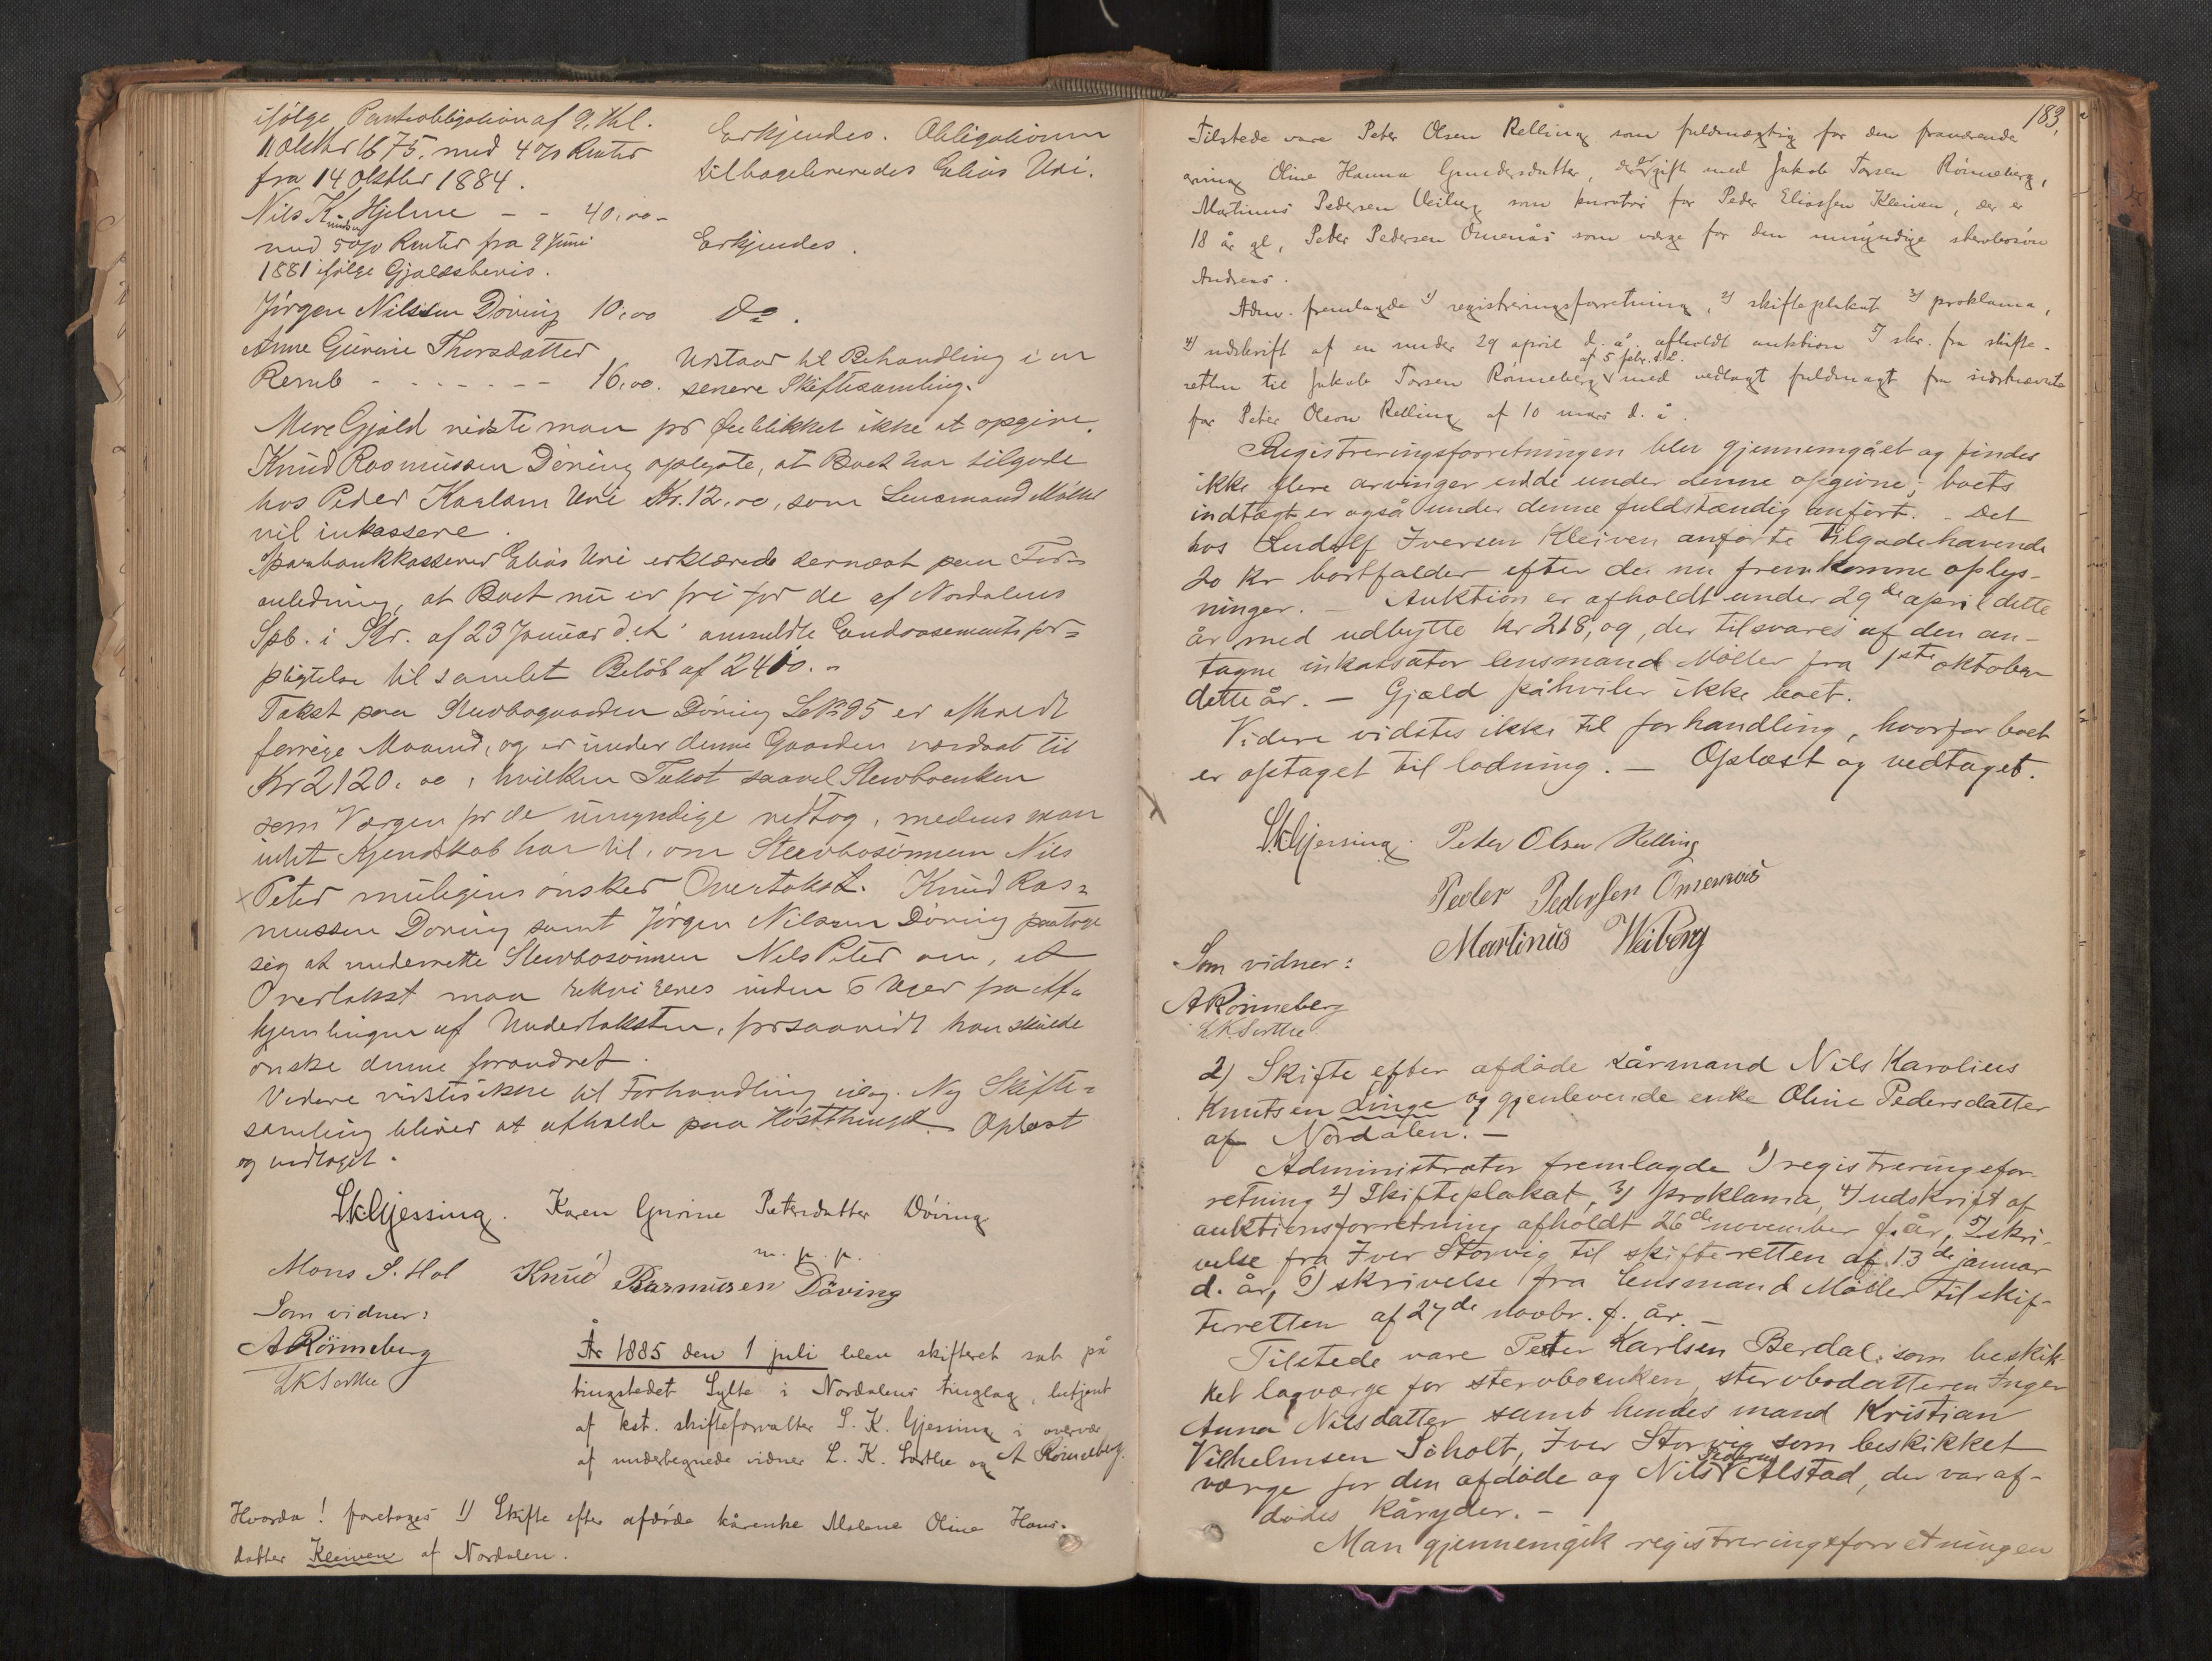 ifølge Pantobligation af 9, thl.
11 Oktbr 1875. med 4 % Renter
fra 14 Oktbr 1884.
Erkjendes. Obligationen
tilbageleveredes Elias Uri.
Nils Knudsen Hjelme - - 40,00 -
med 5 % Renter fra 9 Juni
1881 ifølge Gjældsbevis.
Erkjendes.
Jörgen Nilssen Döving 10,00 do.
Anne Gurine Thorsdatter
Remb - - - - - - - 16,00.
Udstaar til Behandling i en
senere Skiftesamling.
Mere Gjæld vidste man for Øieblikket ikke at opgive.
Knud Rasmussen Döving oplyste, at Boet har tilgode
hos Peder Karlsen Uri Kr. 12,00, som Lensmand Möller
vil inkassere.
Sparebankkasserer Elias Uri erklærede dernæst paa For-
anledning, at Boet nu er fri for de af Nordalens
Spb. i Skr. af 23 Januar d. A. anmeldte Endossementsfor-
pligtelser til samlet Beløb af 2410.-
Takst paa Stervbogaarden Döving LNo 95 er afholdt
forrige Maaned, og er under denne Gaarden værdsat til
Kr 2120,00, hvilken Takst saavel Stervboenken
som Værgen for de umyndige vedtog, medens man
intet Kjendskab har til, om Stervbosönnen Nils
Peter muligens önsker Overtakst. Knud Ras-
mussen Döving samt Jörgen Nilssen Döving paatoge
sig at underrette Stervbosönnen Nils Peter om, at
Overtakst maa rekvireres inden 6 Uger fra Af-
hjemlingen af Undertaksten, forsaavidt han skulde
önske denne forandret.
Videre vidstes ikke til Forhandling idag. Ny Skifte-
samling bliver at afholde paa Høstthinget. Oplæst
og vedtaget.
S.K. Gjessing. Karen Gurine Petersdatter Döving
m. p. p.
Mons S. Hol Knud Rasmusen Döving
Som vidner:
A Rönneberg
L K Sorthe
År 1885 den 1 juli blev skifteret sat på
tingstedet Sylte i Nordalens tinglag, betjent
af kst. skifteforvalter S. K. Gjessing i overvær
af undertegnede vidner L. K. Sorthe og A Rönneberg.
Hvorda! foretoges 1) Skifte efter afdöde kårenke Malene Oline Hans-
datter Kleiven af Nordalen.
183,
Tilstede vare Peter Olsen Relling som fuldmægtig for den fraværende
arving Oline Hanna Gundersdatter, der er gift med Jakob Torsen Rönneberg,
Martinus Pedersen Veiberg som kurator for Peder Eliassen Kleiven, der er
18 år gl, Peder Pedersen Omenås som værge for den umyndige stervbosön
Andreas.
Adm. fremlagde 1) registreringsforretning, 2) skifteplakat 3) proklama,
4) udskrift af en under 29 april d. å. afholdt auktion 5) skr. fra skifte-
retten til Jakob Torsen Rönneberg af 5 febr. d. å. med vedlagt fuldmagt fra sidstnævnte
for Peter Olsen Relling af 10 mars d. å.
Registreringsforretningen blev gjennemgået og findes
ikke flere arvinger end de under denne opgivne; boets
indtægt er også under denne fuldstændig anfört. - Det
hos Ludolf Iversen Kleiven anförte tilgodehavende
20 kr bortfalder efter de nu fremkomne oplys-
ninger. - Auktion er afholdt under 29de april dette
år med udbytte kr 218,09, der tilsvares af den an-
tagne inkassator lensmand Möller fra 1ste oktober
dette år. - Gjæld påhviler ikke boet.
Videre vidstes ikke til forhandling, hvorfor boet
er optaget til lodning. - Oplæst og vedtaget.
S.K. Gjessing. Peter Olsen Relling
Peder Pedersen Omenaas
Martinus Weiberg
Som vidner:
A Rönneberg
L K Sorthe
2) Skifte efter afdöde kårmand Nils Karolius
Knutsen Linge og gjenlevende enke Oline Pedersdatter
af Nordalen. -
Administrator fremlagde 1) registreringsfor-
retning 2) Skifteplakat, 3) proklama, 4) udskrift af
auktionsforretning afholdt 26de november f. år, 5) skri-
velse fra Iver Storvig til skifteretten af 13de januar
d. år, 6) skrivelse fra lensmand Möller til skif-
teretten af 27de novbr. f. år. -
Tilstede vare Peter Karlsen Berdal som beskik-
ket lagværge for stervboenken, stervbodatteren Inger
Anna Nilsdatter samt hendes mand Kristian
Vilhelmsen Söholt, Iver Storvig som beskikket
værge for den afdöde og Nils Alstad, der var af-
dödes kåryder. -
Man gjennemgik registreringsforretningen